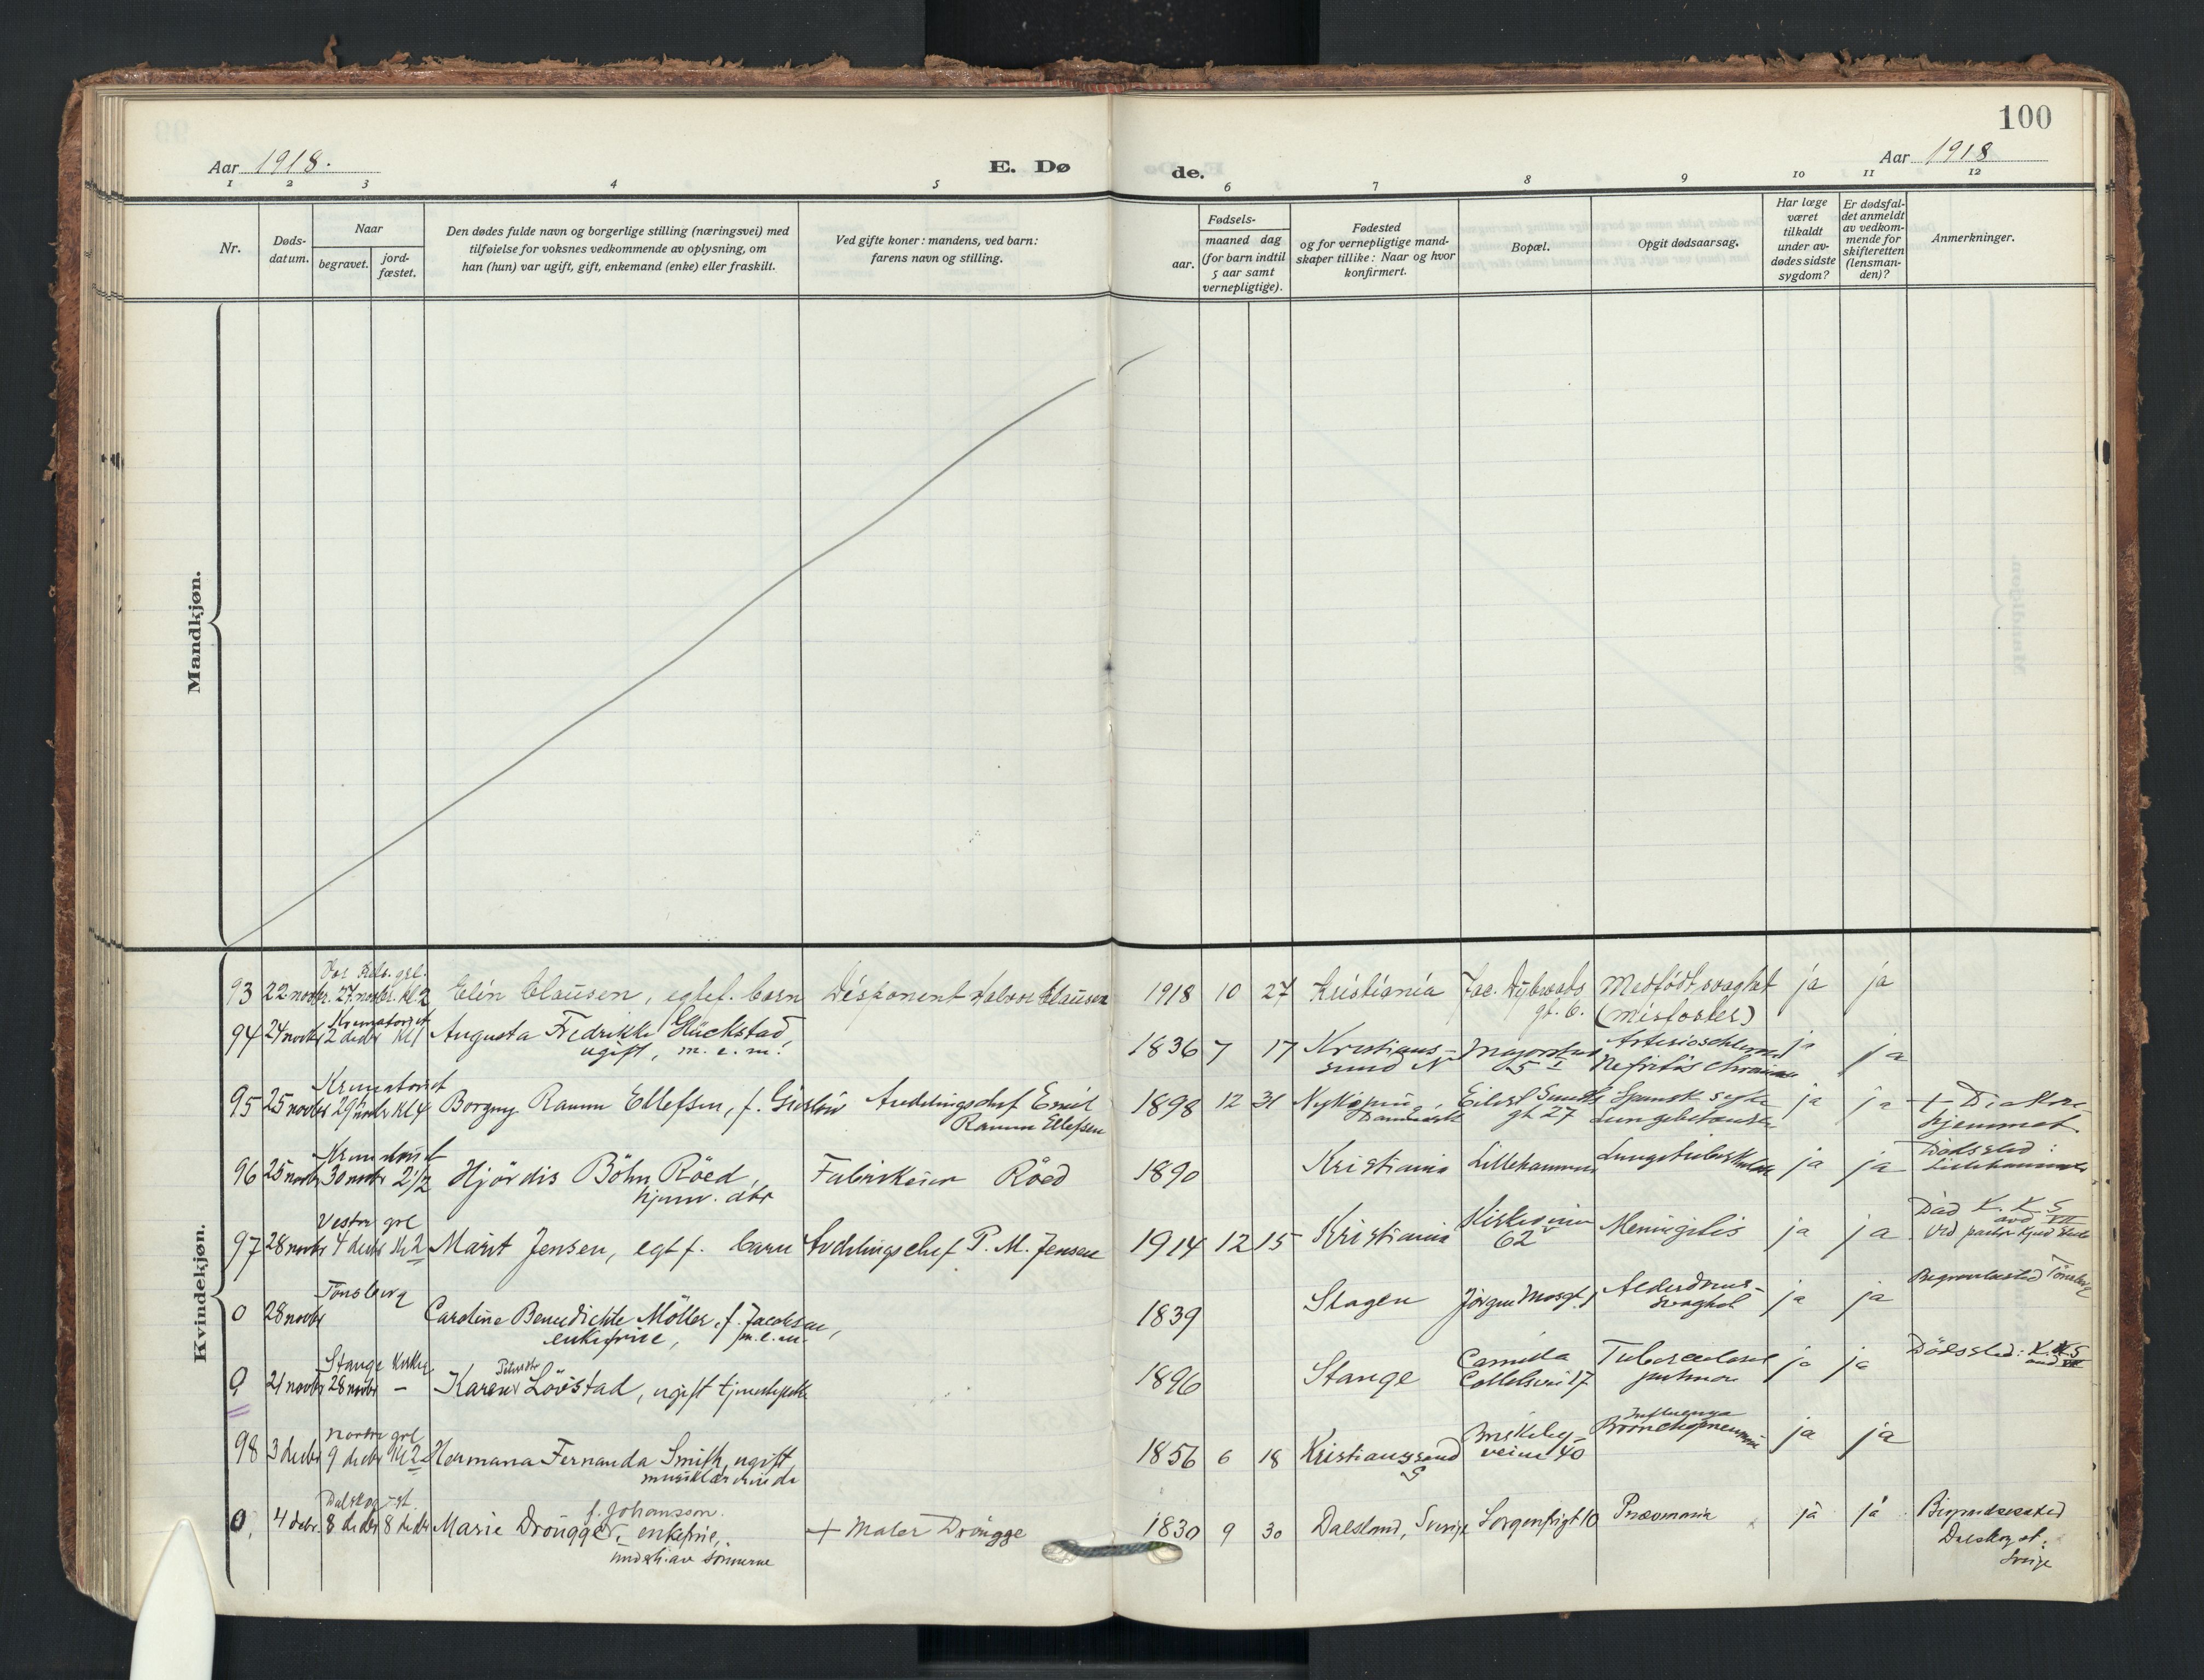 100
Aar 1918.
E. Dø
de.
Aar 1918
1 2 3 4 5 6 7 8 9 10 11 12
Nr.
Døds-
datum.
Naar
begravet.
jord-
fæstet.
Den dødes fulde navn og borgerlige stilling (næringsvei) med
tilføielse for voksnes vedkommende av oplysning, om
han (hun) var ugift, gift, enkemand (enke) eller fraskilt.
Ved gifte koner: mandens, ved barn:
farens navn og stilling.
Fødsels-
aar.
maaned dag
(for barn indtil
5 aar samt
vernepligtige).
Fødested
og for vernepligtige mand-
skaper tillike: Naar og hvor
konfirmert.
Bopæl.
Opgit dødsaarsag.
Har læge
været
tilkaldt
under av-
dødes sidste
sygdom?
Er dødsfal-
det anmeldt
av vedkom-
mende for
skifteretten
(lensman-
den)?
Anmerkninger.
Mandkjøn.
Kvindekjøn.
Vor Frels. grl.
93 22 novbr. 27. novbr. kl. 2 Elin Clausen, egtef. barn Disponent Halvor Clausen 1918 10 27 Kristiania Jac. Dybwads Medfödt svaghet ja ja
gt. 6. (misfoster)
Krematoriet
94 24 novbr 2 decbr kl 1 Augusta Fredrikke Glückstad, 1836 7 17 Kristians- Majorstuv ja ja
ugift, m. e. m. sund N 5 I Nefritis chronica
Krematoriet
95 25 novbr 29 novbr kl 4 Borgny Ramm Ellefsen, f. Avdelingschef Emil 1898 12 31 Nyköping, Eilert Sundts Spansk syke ja ja + Diakon-
Ramm Ellefsen Danmark gt 27 Lungebetændelse hjemmet
Krematoriet
96 25 novbr 30 novbr 2 1/2 Hjördis Böhn Röed, Fabrikeier Röed 1890 Kristiania Lillehammer Lungetuberkulose ja ja Dödssted:
hjemv. dtr Lillehammer
Vestre grl
97 28 novbr 4 decbr kl 2 Marit Jensen, egtf. barn Avdelingschef P. M. Jensen 1914 12 15 Kristiania Kirkeveien Meningitis ja ja Död K. K. S
62 avd VII
Ved pastor
Tönsberg
0 28 novbr Caroline Benedickte Möller, f. Jacobsen, 1839 Skagen Jörgen Moesgt. 1 Alderdoms- ja ja Begravelsested Tönsberg
enkefrue, m. e. m. svaghet
Stange kirke
0 21 novbr 28 novbr – Karen Petersdtr Lövstad, ugift tjenestepike 1896 Stange Camilla Tuberculose ja ja Dödssted: K. K. S
Colletsvei 17 pulmon avd VII
Nordre grl
98 3 decbr 9 decbr kl 2 Hermana Fernanda Smith, ugift, 1856 6 18 Kristianssand Briskeby- Influenza ja ja
musiklærerinde S veien 40 Bronchopneumoni
Dalskog st.
0. 4 debr. 8 decbr 8 decbr Marie Drougge, f. Johansson. enkefrue, + Maler Drougge 1830 9 30 Dalsland, Sverige Sorgenfrigt 10 Pnevmonia ja ja Begravelsessted
underh. av sönnerne Dalskog st.
Sverige